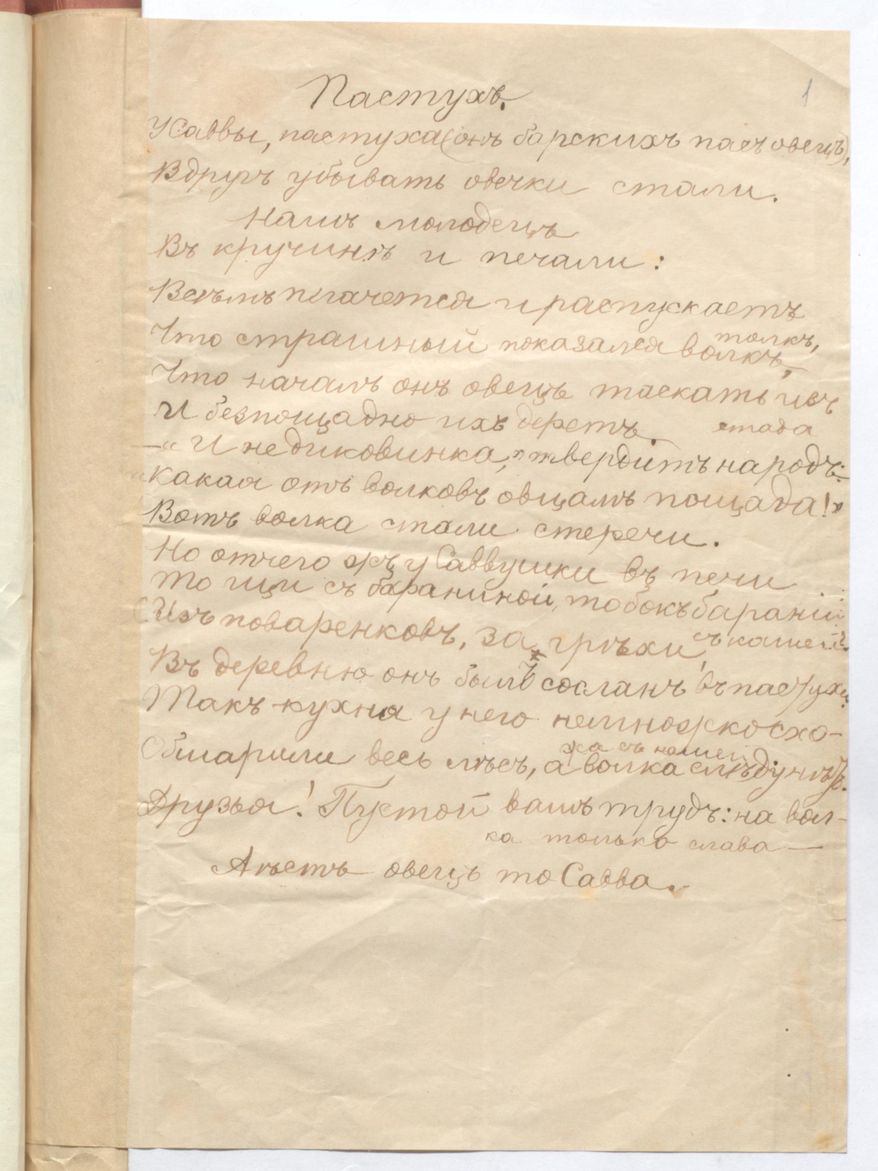 Пастухъ.
1
У Саввы, пастуха (онъ барскихъ пасъ овецъ),
Вдругъ убывать овечки стали.
Нашъ молодецъ
Въ кручинѣ и печали:
Всѣмъ плачется и распускаетъ
толкъ,
Что страшный показался волкъ,
Что началъ онъ овецъ таскать изъ
стада
И безпощадно ихъ деретъ.
— „И не диковинка," твердитъ народъ:
„Какая отъ волковъ овцамъ пощада!"
Вотъ волка стали стеречи.
Но отчего жъ у Саввушки въ печи
То щи съ бараниной, то бокъ бараній
съ кашей?
(Изъ поваренковъ, за грѣхи,
Въ деревню онъ былъ сосланъ въ пастухи:
Такъ кухня у него немножко схо-
жа съ нашей.
Обшарили весь лѣсъ, а волка слѣду нѣтъ.
Друзья! Пустой вашъ трудъ: на вол-
ка только слава —
А ѣстъ овецъ то Савва.